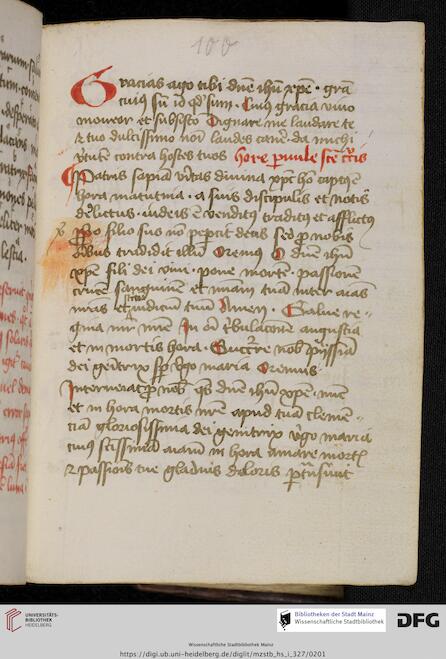 100
Gracias ago tibi dne ihu xpe · gra
cuiq su id qd sum · Cuiq gracia vivo
moveor et subsisto Dignare me laudare te
& tuo dulcissimo noi laudes cane· da michi
vtute contra hostes tuos hore pvule ste crcis
Patris sapia vitas divina xpc ho captq e
hora matutina · a suis discipulis et notis
delictus · iudeis e venditq traditq et afflictq
pprio filio suo no pepcit deus sed p nobis
oibus tradidit illu Oremus O dne ihu
xpe fili dei viui · pone morte · passione
cruce sanguinem et inam tua inter aias
nras et iudiciu tuu Amen · Salue re-
gina mr mie In oi tbulacone angustia
et in mortis hora · Succrre nob piissia
dei genitrix sp vgo maria Oremus
Interueniat p nob qs dne ihu xpe · nuc
et in hora mortis nre apud tua clemen-
cia gloriosissima dei genitrix vgo maria
cuiq scissima aiam in hora amare mort
& passionis tue gladius doloris ptusiuit
UNIVERSITÄTS-
BIBLIOTHEK
HEIDELBERG
Bibliotheken der Stadt Mainz
Wissenschaftliche Stadtbibliothek
DFG
Wissenschaftliche Stadtbibliothek Mainz
https://digi.ub.uni-heidelberg.de/diglit/mzstb_hs_i_327/0201